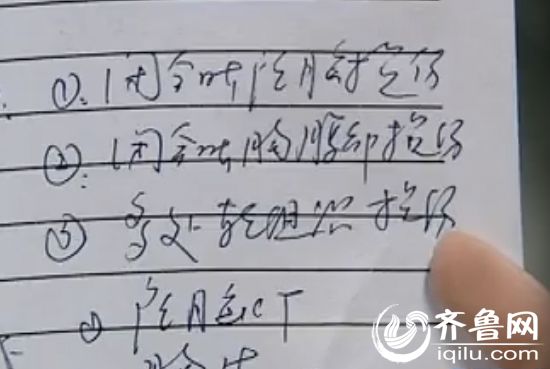 ①: 闭合性颅脑损伤
②: 闭合性胸腹部损伤
③ 多处软组织损伤
① 颅脑CT
齐鲁网
iqilu.com